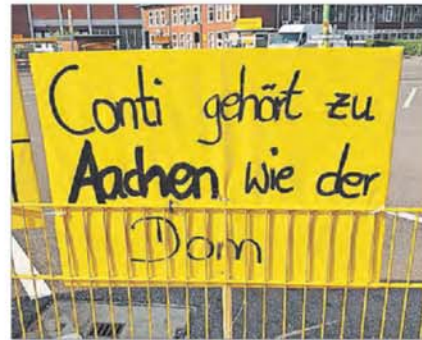 Conti gehört zu
Aachen wie der
Dom